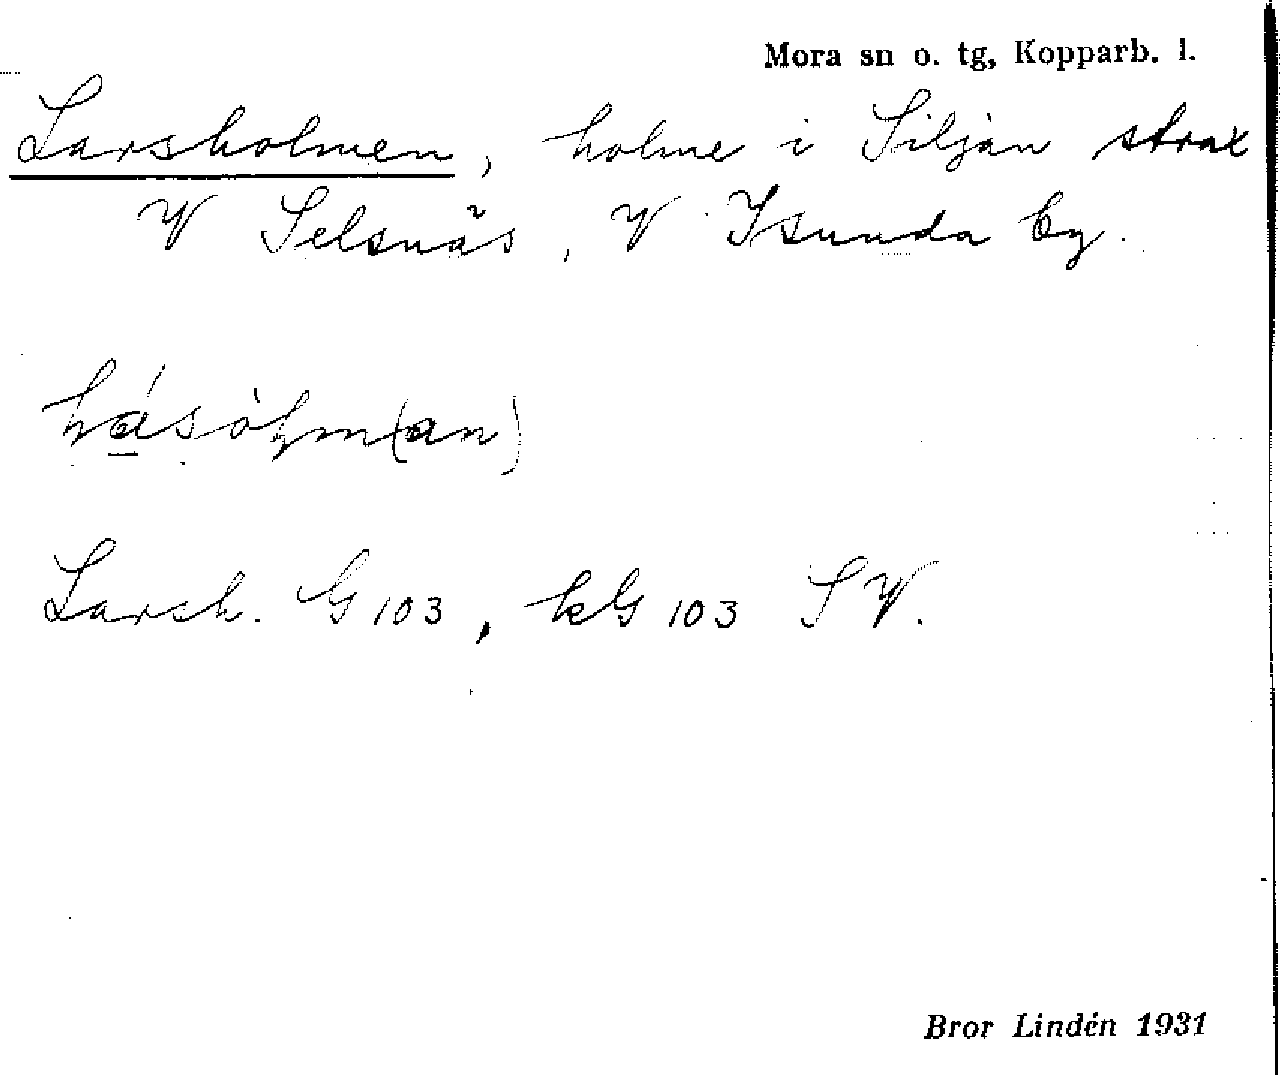 Mora sn o. tg, Kopparb. l.
Larsholmen, holme i Siljan strax
V Selsnäs, V Isunda by.
Larsh. G 103, kG 103 SV.
Bror Lindén 1931